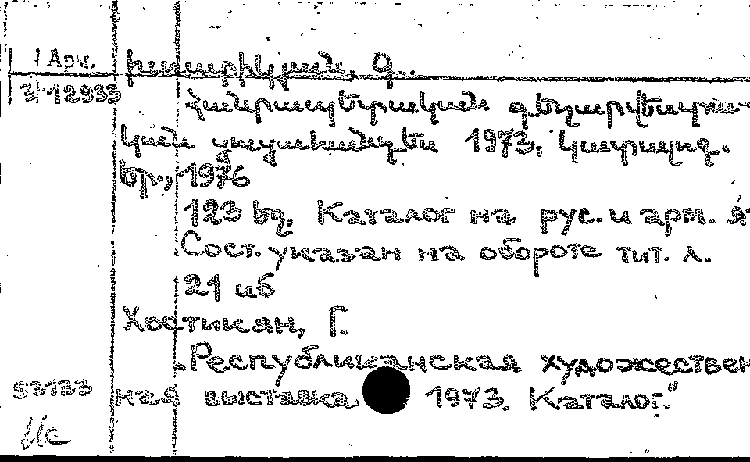 1 Арм.
31-12933
Խստիկյան, Գ.
Հանրապետական գեղարվեստա-
կան ցուցահանդես 1973. կատալոգ.
Եր., 1976
123 եզ. Каталог на рус. и арм. я
Сост. указан на обороте тит. л.
21 иб
Хостикян, Г.
„Республиканская художествен
53133 ная выставка 1973. Каталог."